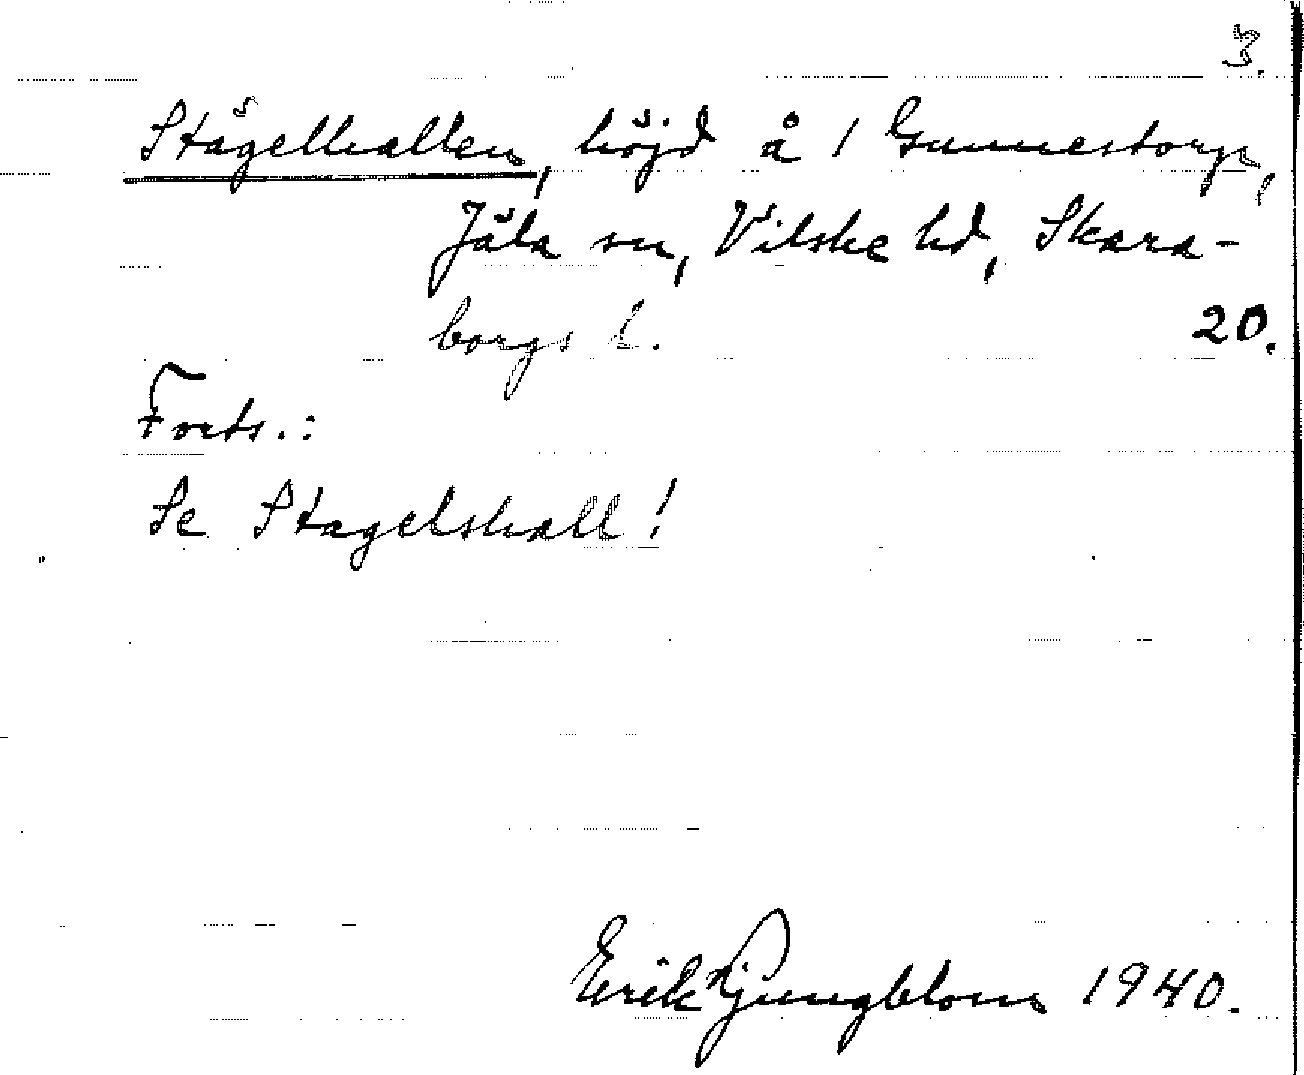 3.
Stägelhallen, höjd å 1 Gunnestorp,
Jäla sn, Vilske hd, Skara-
borgs l.
20.
Forts.:
Se Stagelshall!
Erik Ljungblom 1940.